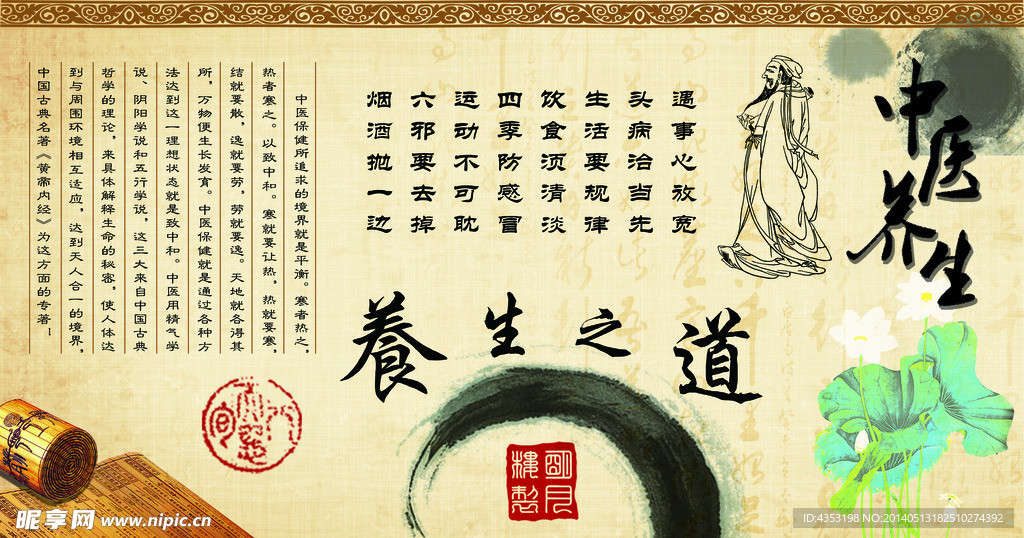 中医养生
遇事心放宽
头病治当先
生活要规律
饮食须清淡
四季防感冒
运动不可耽
六邪要去掉
烟酒抛一边
養生之道
中医保健所追求的境界就是平衡。寒者热之，
热者寒之。以致中和。寒就要让热，热就要寒，
结就要散，逸就要劳，劳就要逸。天地就各得其
所，万物便生长发育。中医保健就是通过各种方
法达到这一理想状态就是致中和。中医用精气学
说、阴阳学说和五行学说，这三大来自中国古典
哲学的理论，来具体解释生命的秘密，使人体达
到与周围环境相互适应，达到天人合一的境界，
中国古典名著《黄帝内经》为这方面的专著！
明月
樓製
昵享网 www.nipic.cn
ID:4353198 NO:20140513182510274392